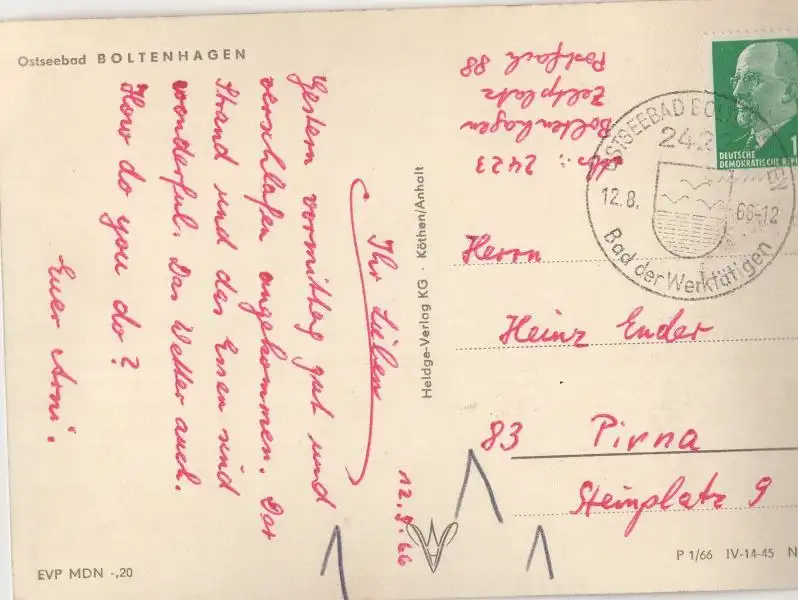 Ostseebad BOLTENHAGEN
12.8.66
Ihr Lieben
Gestern vormittag gut und
verschlafen angekommen. Der
Strand und das Essen sind
wonderful. Das Wetter auch.
How do you do?
Euer Arni.
EVP MDN -,20
Heldge-Verlag KG · Köthen/Anhalt
Abs.: 2423
Boltenhagen
Zeltplatz
Postfach 88
DEUTSCHE
DEMOKRATISCHE REP
OSTSEEBAD BOLTENHAGEN
12.8. 66-12
Bad der Werktätigen
Herrn
Heinz Ender
83 Pirna
Steinplatz 9
P 1/66 IV-14-45 N